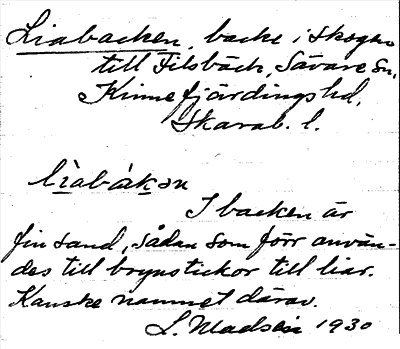 Liabacken, backe i skogen
till Filsbäck, Sävare sn,
Kinnefjärdings hd,
Skarab. l.
lìabákən
I backen är
fin sand, sådan som förr använ-
des till brynstickor till liar.
Kanske namnet därav.
L. Madsén 1930